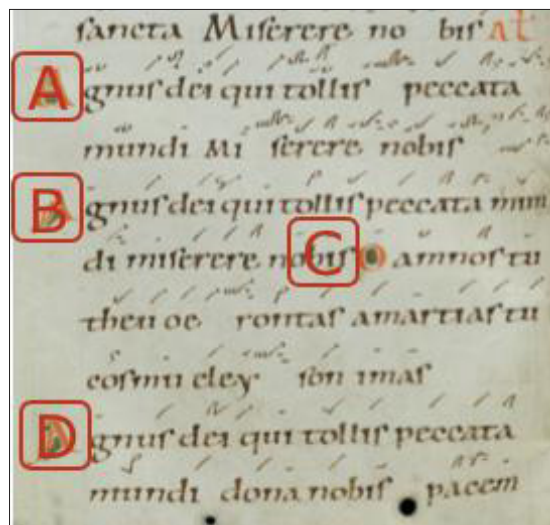 sancta Miserere no bis
A gnus dei qui tollis peccata
mundi Mi serere nobis
B gnus dei qui tollis peccata mun
di miserere nobis C O amnos tu
theu oe rontas amartias tu
cosmu eley son imas
D gnus dei qui tollis peccata
mundi dona nobis pacem